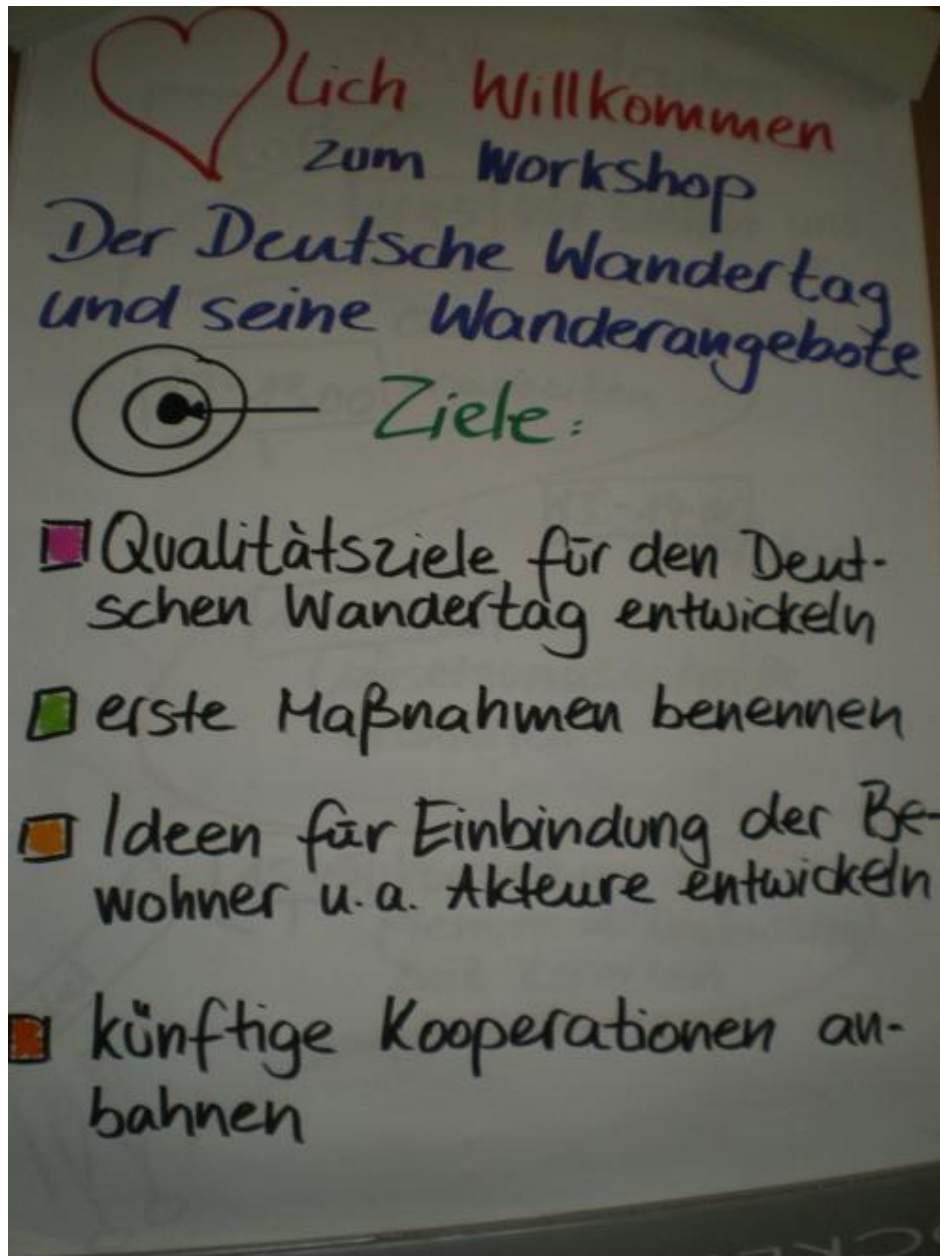 lich Willkommen
zum Workshop
Der Deutsche Wandertag
und seine Wanderangebote
Ziele:
Qualitätsziele für den Deut-
schen Wandertag entwickeln
erste Maßnahmen benennen
Ideen für Einbindung der Be-
wohner u.a. Akteure entwickeln
künftige Kooperationen an-
bahnen